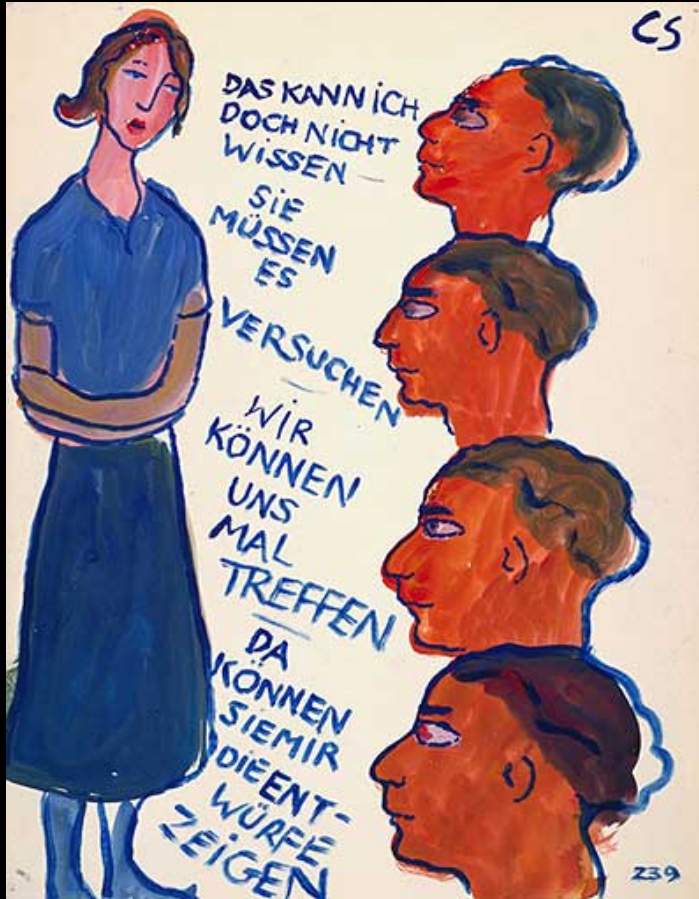 CS
DAS KANN ICH
DOCH NICHT
WISSEN —
SIE
MÜSSEN
ES
VERSUCHEN
—
WIR
KÖNNEN
UNS
MAL
TREFFEN
—
DA
KÖNNEN
SIE MIR
DIE ENT-
WÜRFE
ZEIGEN
239